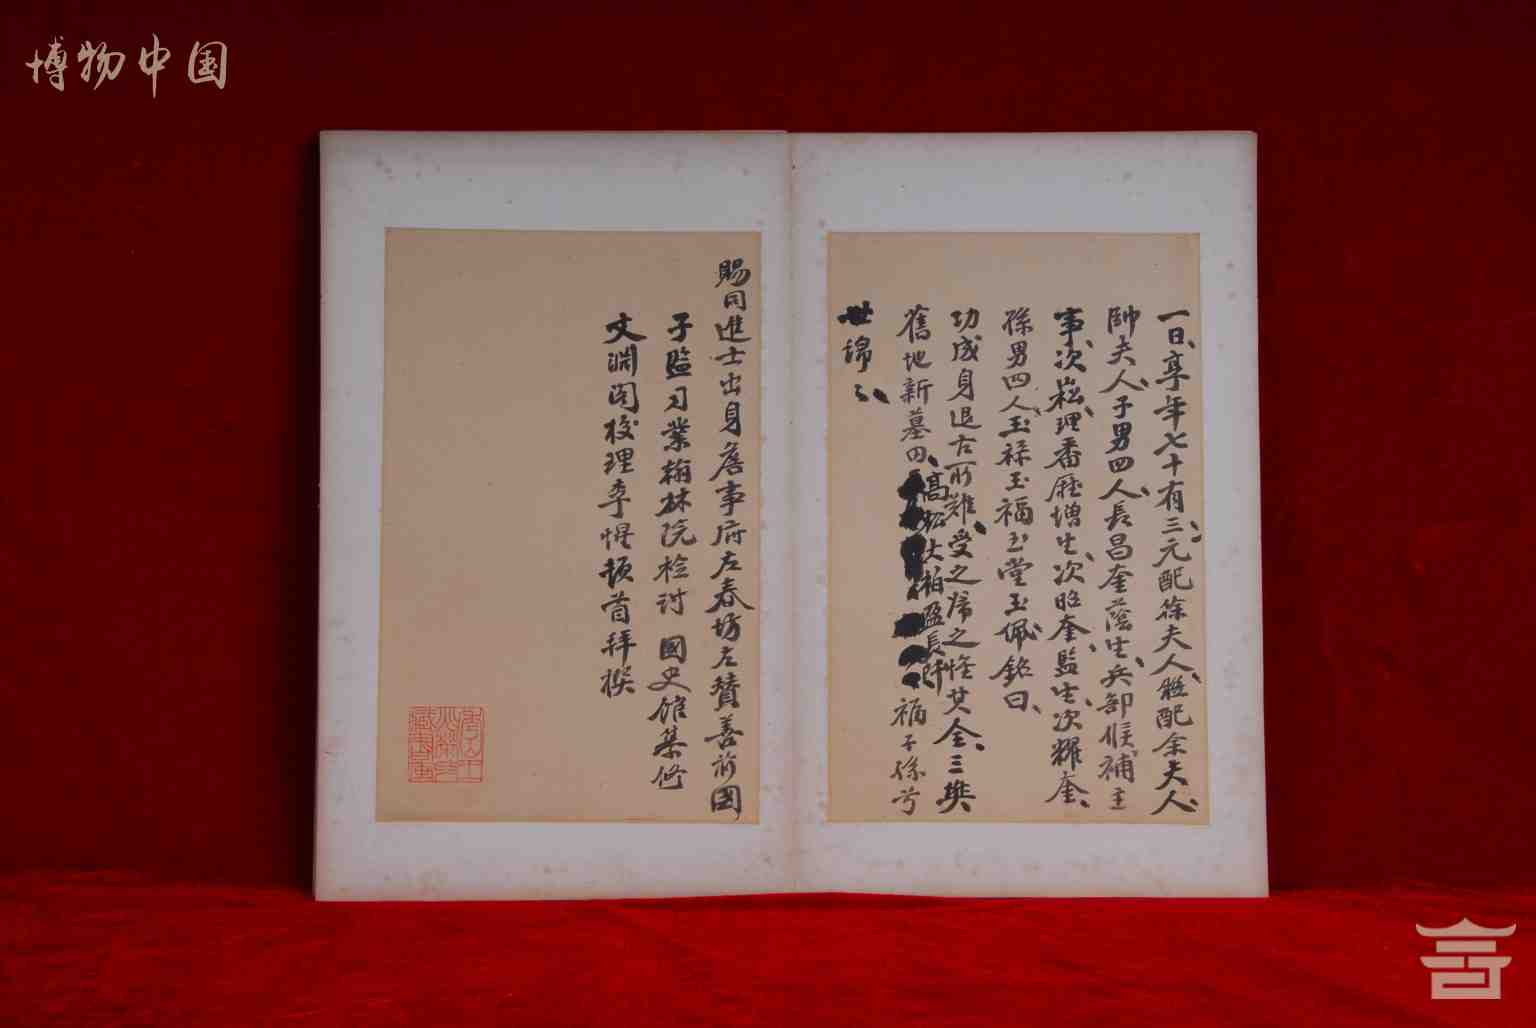 博物中国
一日享年七十有三元配徐夫人继配余夫人
帥夫人子男四人長昌奎蔭生兵部候補主
事次崧理番廳增生次昭奎監生次耀奎
孫男四人玉祿玉福玉堂玉佩銘曰
功成身退古所難受之帰之惟其全三奠
舊地新墓田高松大柏盈長阡福子孫兮
世緜〻
賜同進士出身詹事府左春坊左贊善前國
子監司業翰林院檢討國史館纂修
文淵閣校理李惺頓首拜撰